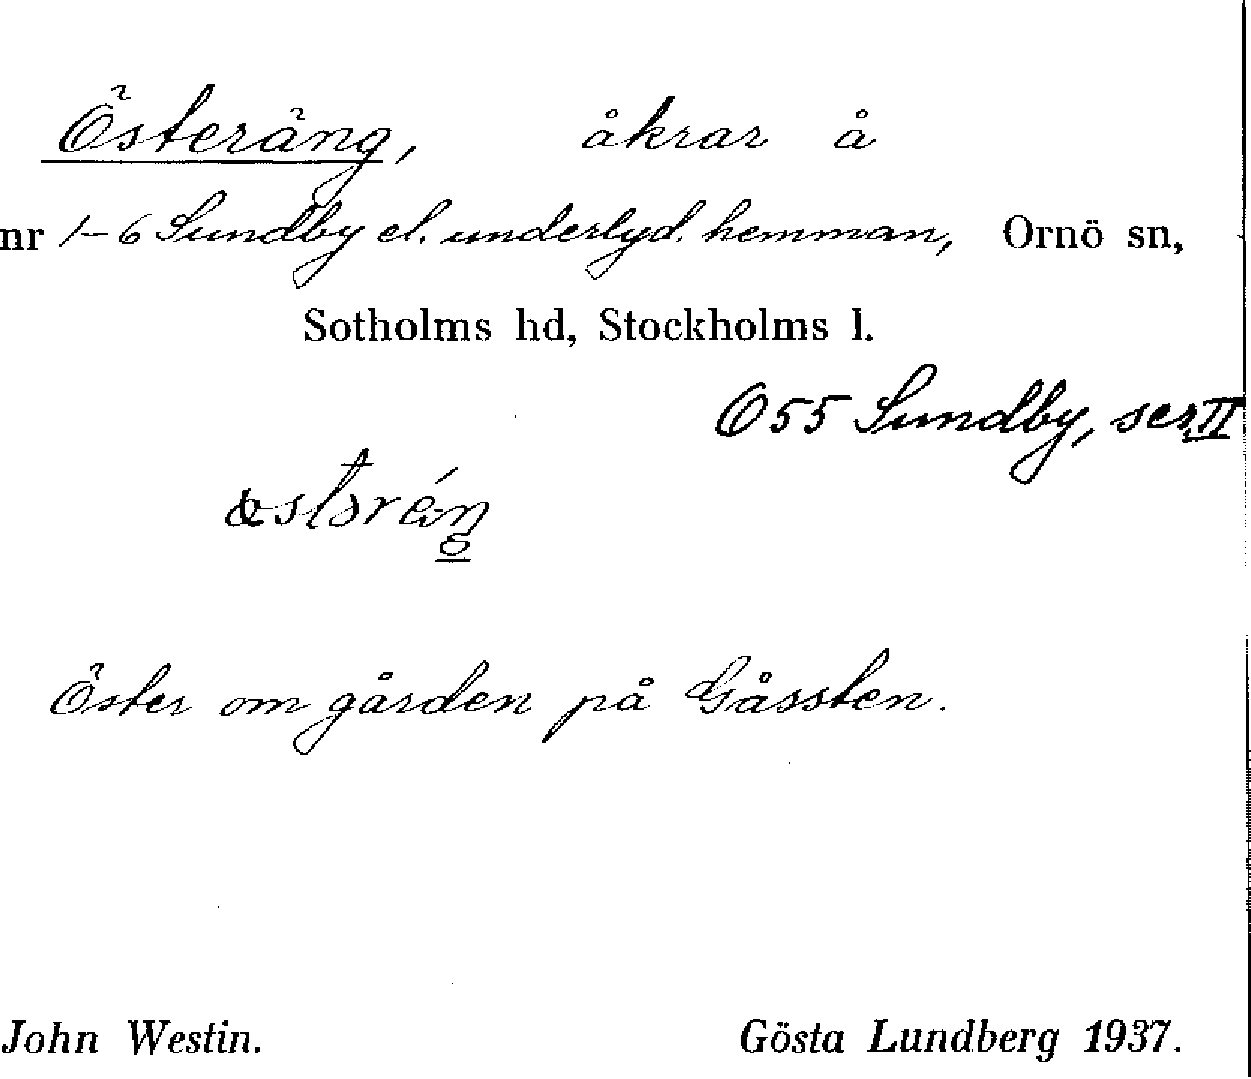 Österäng, åkrar å
nr 1-6 Sundby el. underlyd. hemman, Ornö sn,
Sotholms hd, Stockholms l.
Ö 55 Sundby, ser. II
Öster om gården på Gåssten.
John Westin. Gösta Lundberg 1937.